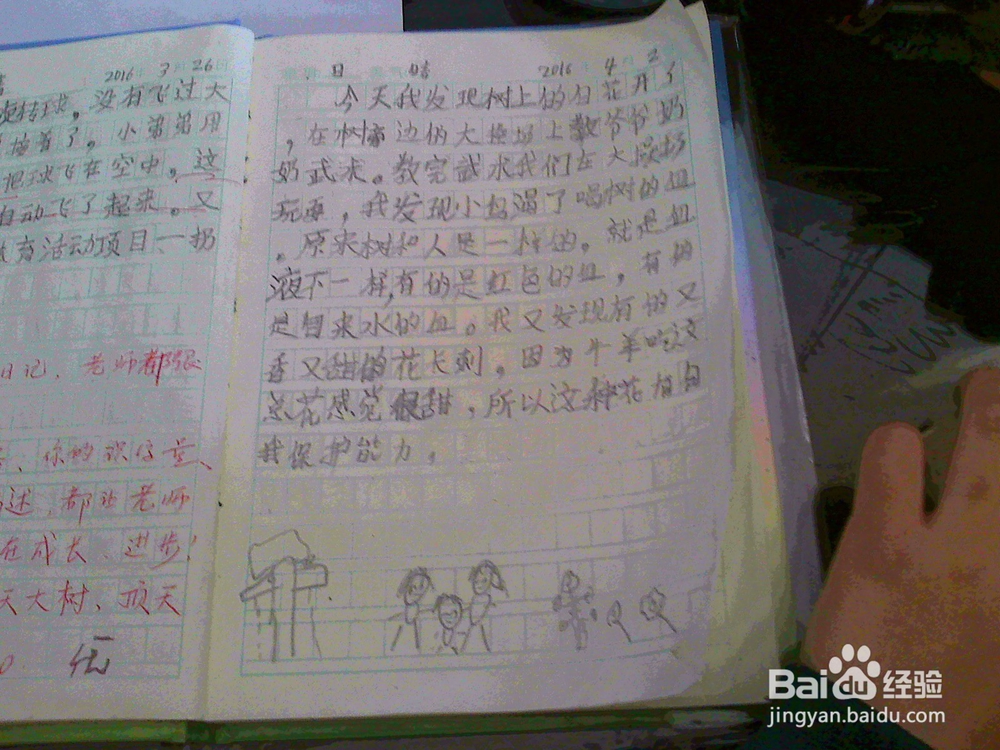 2016 3 26
转球，没有飞过大
着了。小弟弟用
把球飞在空中，这
自动飞了起来。又
育活动项目一拐
日记，老师都很
你的识字量、
述，都让老师
在成长、进步！
天大树、顶天
优
日 晴 2016 4 2
今天我发现树上的白花开了
，在树旁边的大操场上教爷爷奶
奶武术。教完武术我们在大操场
玩耍，我发现小鸟渴了喝树的血
。原来树和人是一样的。就是血
液不一样，有的是红色的血，有的
是自来水的血。我又发现有的又
香又甜的花长刺，因为牛羊吃这
些花感觉很甜，所以这种花有自
我保护能力。
Baidu经验
jingyan.baidu.com